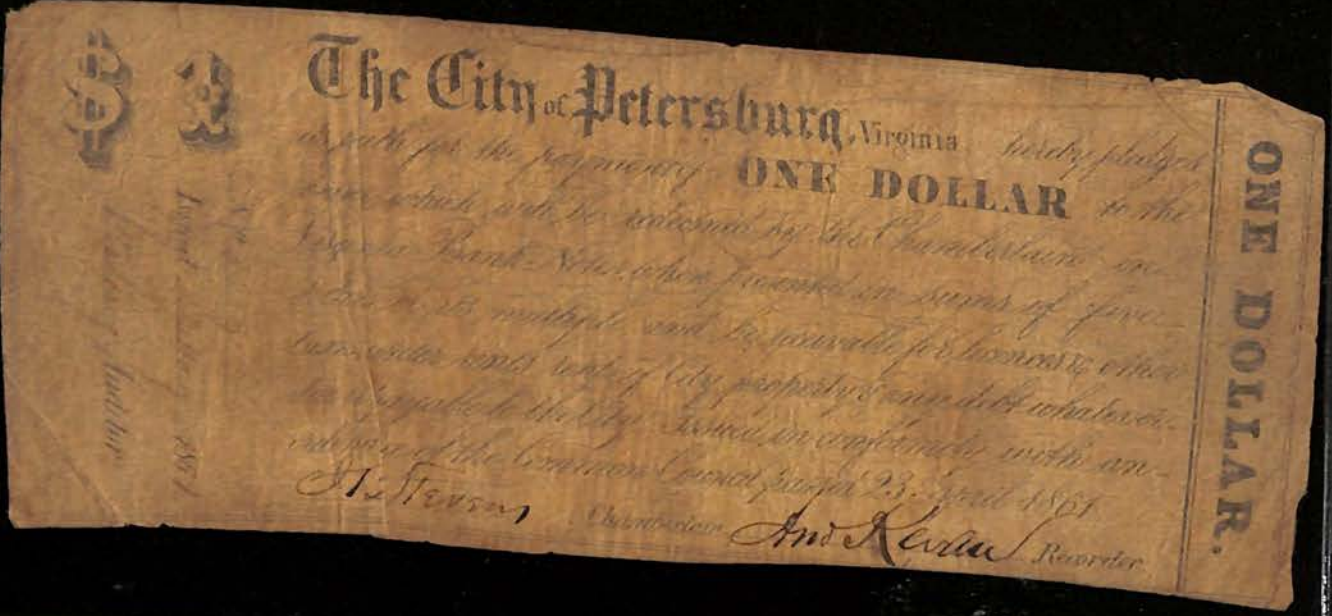 The City of Petersburg, Virginia hereby pledges
its faith for the payment of ONE DOLLAR to the
which will be redeemed by the Chamberlain in
Virginia Bank Notes, when presented in sums of five
multiple and be receivable for licenses & other
and rent of City property & any debt whatever
payable to the City. Issued in conformity with an
ordinance of the Common Council passed 23. April 1861
Stevens Chamberlain And Kevan Recorder
$ 1
No
Issued 1861
Auditor
ONE DOLLAR.